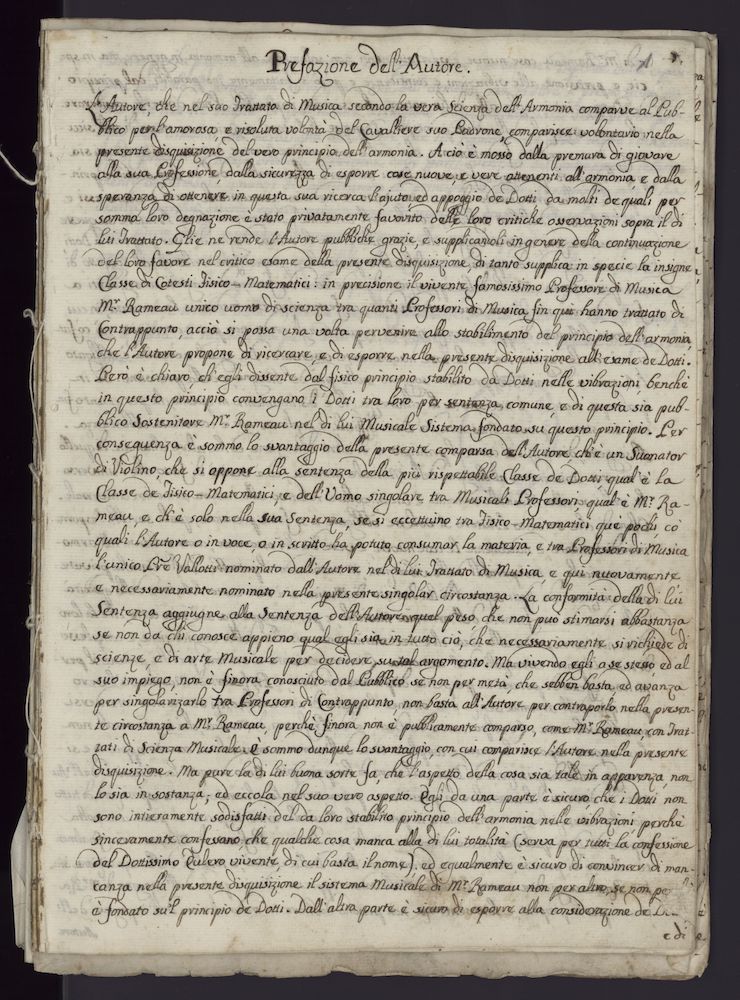 Prefazione dell'Autore.
L'Autore, che nel suo Trattato di Musica secondo la vera scienza dell'Armonia comparve al Pub-
blico per l'amorosa, e risoluta volontà del Cavalliere suo Padrone, comparisce volontario nella
presente disquisizione del vero principio dell'armonia. A ciò è mosso dalla premura di giovare
alla sua Professione, dalla sicurezza di esporre cose nuove, e vere attenenti all'armonia e dalla
speranza di ottenere in questa sua ricerca l'ajuto, ed appoggio de Dotti, da molti de quali per
somma loro degnazione è stato privatamente favorito delle loro critiche osservazioni sopra il di
lui Trattato. Glie ne rende l'Autore pubbliche grazie, e supplicandoli in genere della continuazione
del loro favore nel critico esame della presente disquisizione, di tanto supplica in specie la insigne
Classe di Cotesti Fisico-Matematici: in precisione il vivente famosissimo Professore di Musica
Mr. Rameau unico uomo di scienza tra quanti Professori di Musica fin qui hanno trattato di
Contrappunto, acciò si possa una volta pervenire allo stabilimento del principio dell'armonia,
che l'Autore propone di ricercare, e di esporre nella presente disquisizione all'esame de Dotti.
Però è chiaro, ch'egli dissente dal fisico principio stabilito da Dotti nelle vibrazioni, benchè
in questo principio convengano i Dotti tra loro per sentenza comune, e di questa sia pub-
blico Sostenitore Mr. Rameau nel di lui Musicale Sistema fondato su questo principio. Per
conseguenza è sommo lo svantaggio della presente comparsa dell'Autore ch'è un Suonator
di Violino, che si oppone alla sentenza della più rispettabile Classe de Dotti qual'è la
Classe de Fisico-Matematici, e dell'Uomo singolare tra Musicali Professori, qual'è Mr. Ra-
meau, e ch'è solo nella sua Sentenza, se si eccettuino tra Fisico-Matematici que pochi, co'
quali l'Autore o in voce, o in scritto ha potuto consumar la materia, e tra Professori di Musica
l'unico Pre Vallotti nominato dall'Autore nel di lui Trattato di Musica, e qui nuovamente
e necessariamente nominato nella presente singolar circostanza. La conformità della di lui
Sentenza aggiugne alla Sentenza dell'Autore quel peso, che non può stimarsi abbastanza
se non da chi conosce appieno qual egli sia in tutto ciò, che necessariamente si richiede di
scienze, e di arte Musicale per decidere su tal argomento. Ma vivendo egli a se stesso ed al
suo impiego, non è finora conosciuto dal Pubblico se non per metà, che sebben basta, ed avanza
per singolarizarlo tra Professori di Contrappunto, non basta all'Autore per contraporlo nella presen-
te circostanza a Mr. Rameau, perchè finora non è pubblicamente comparso, come Mr. Rameau, con Trat-
tati di Scienza Musicale. È sommo dunque lo svantaggio, con cui comparisce l'Autore nella presente
disquisizione. Ma pure la di lui buona sorte fa, che l'aspetto della cosa sia tale in apparenza, non
lo sia in sostanza, ed eccola nel suo vero aspetto. Egli da una parte è sicuro che i Dotti non
sono intieramente sodisfatti del da loro stabilito principio dell'armonia nelle vibrazioni perchè
sinceramente confessano che qualche cosa manca alla di lui totalità (serva per tutti la confessione
del Dottissimo Eulero vivente, di cui basta il nome), ed equalmente è sicuro di convincer di man-
canza nella presente disquisizione il sistema Musicale di Mr. Rameau non per altro, se non per
è fondato sù'l principio de Dotti. Dall'altra parte è sicuro di esporre alla considerazione de Di-
e di